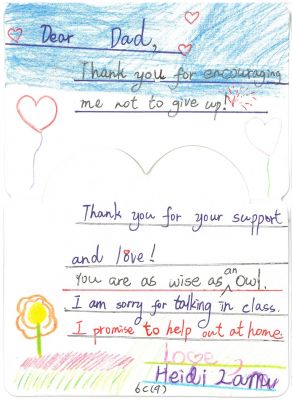 Dear Dad,
Thank you for encouraging
me not to give up!
Thank you for your support
and love!
You are as wise as an Owl.
I am sorry for talking in class.
I promise to help out at home
love,
Heidi
6C(9)